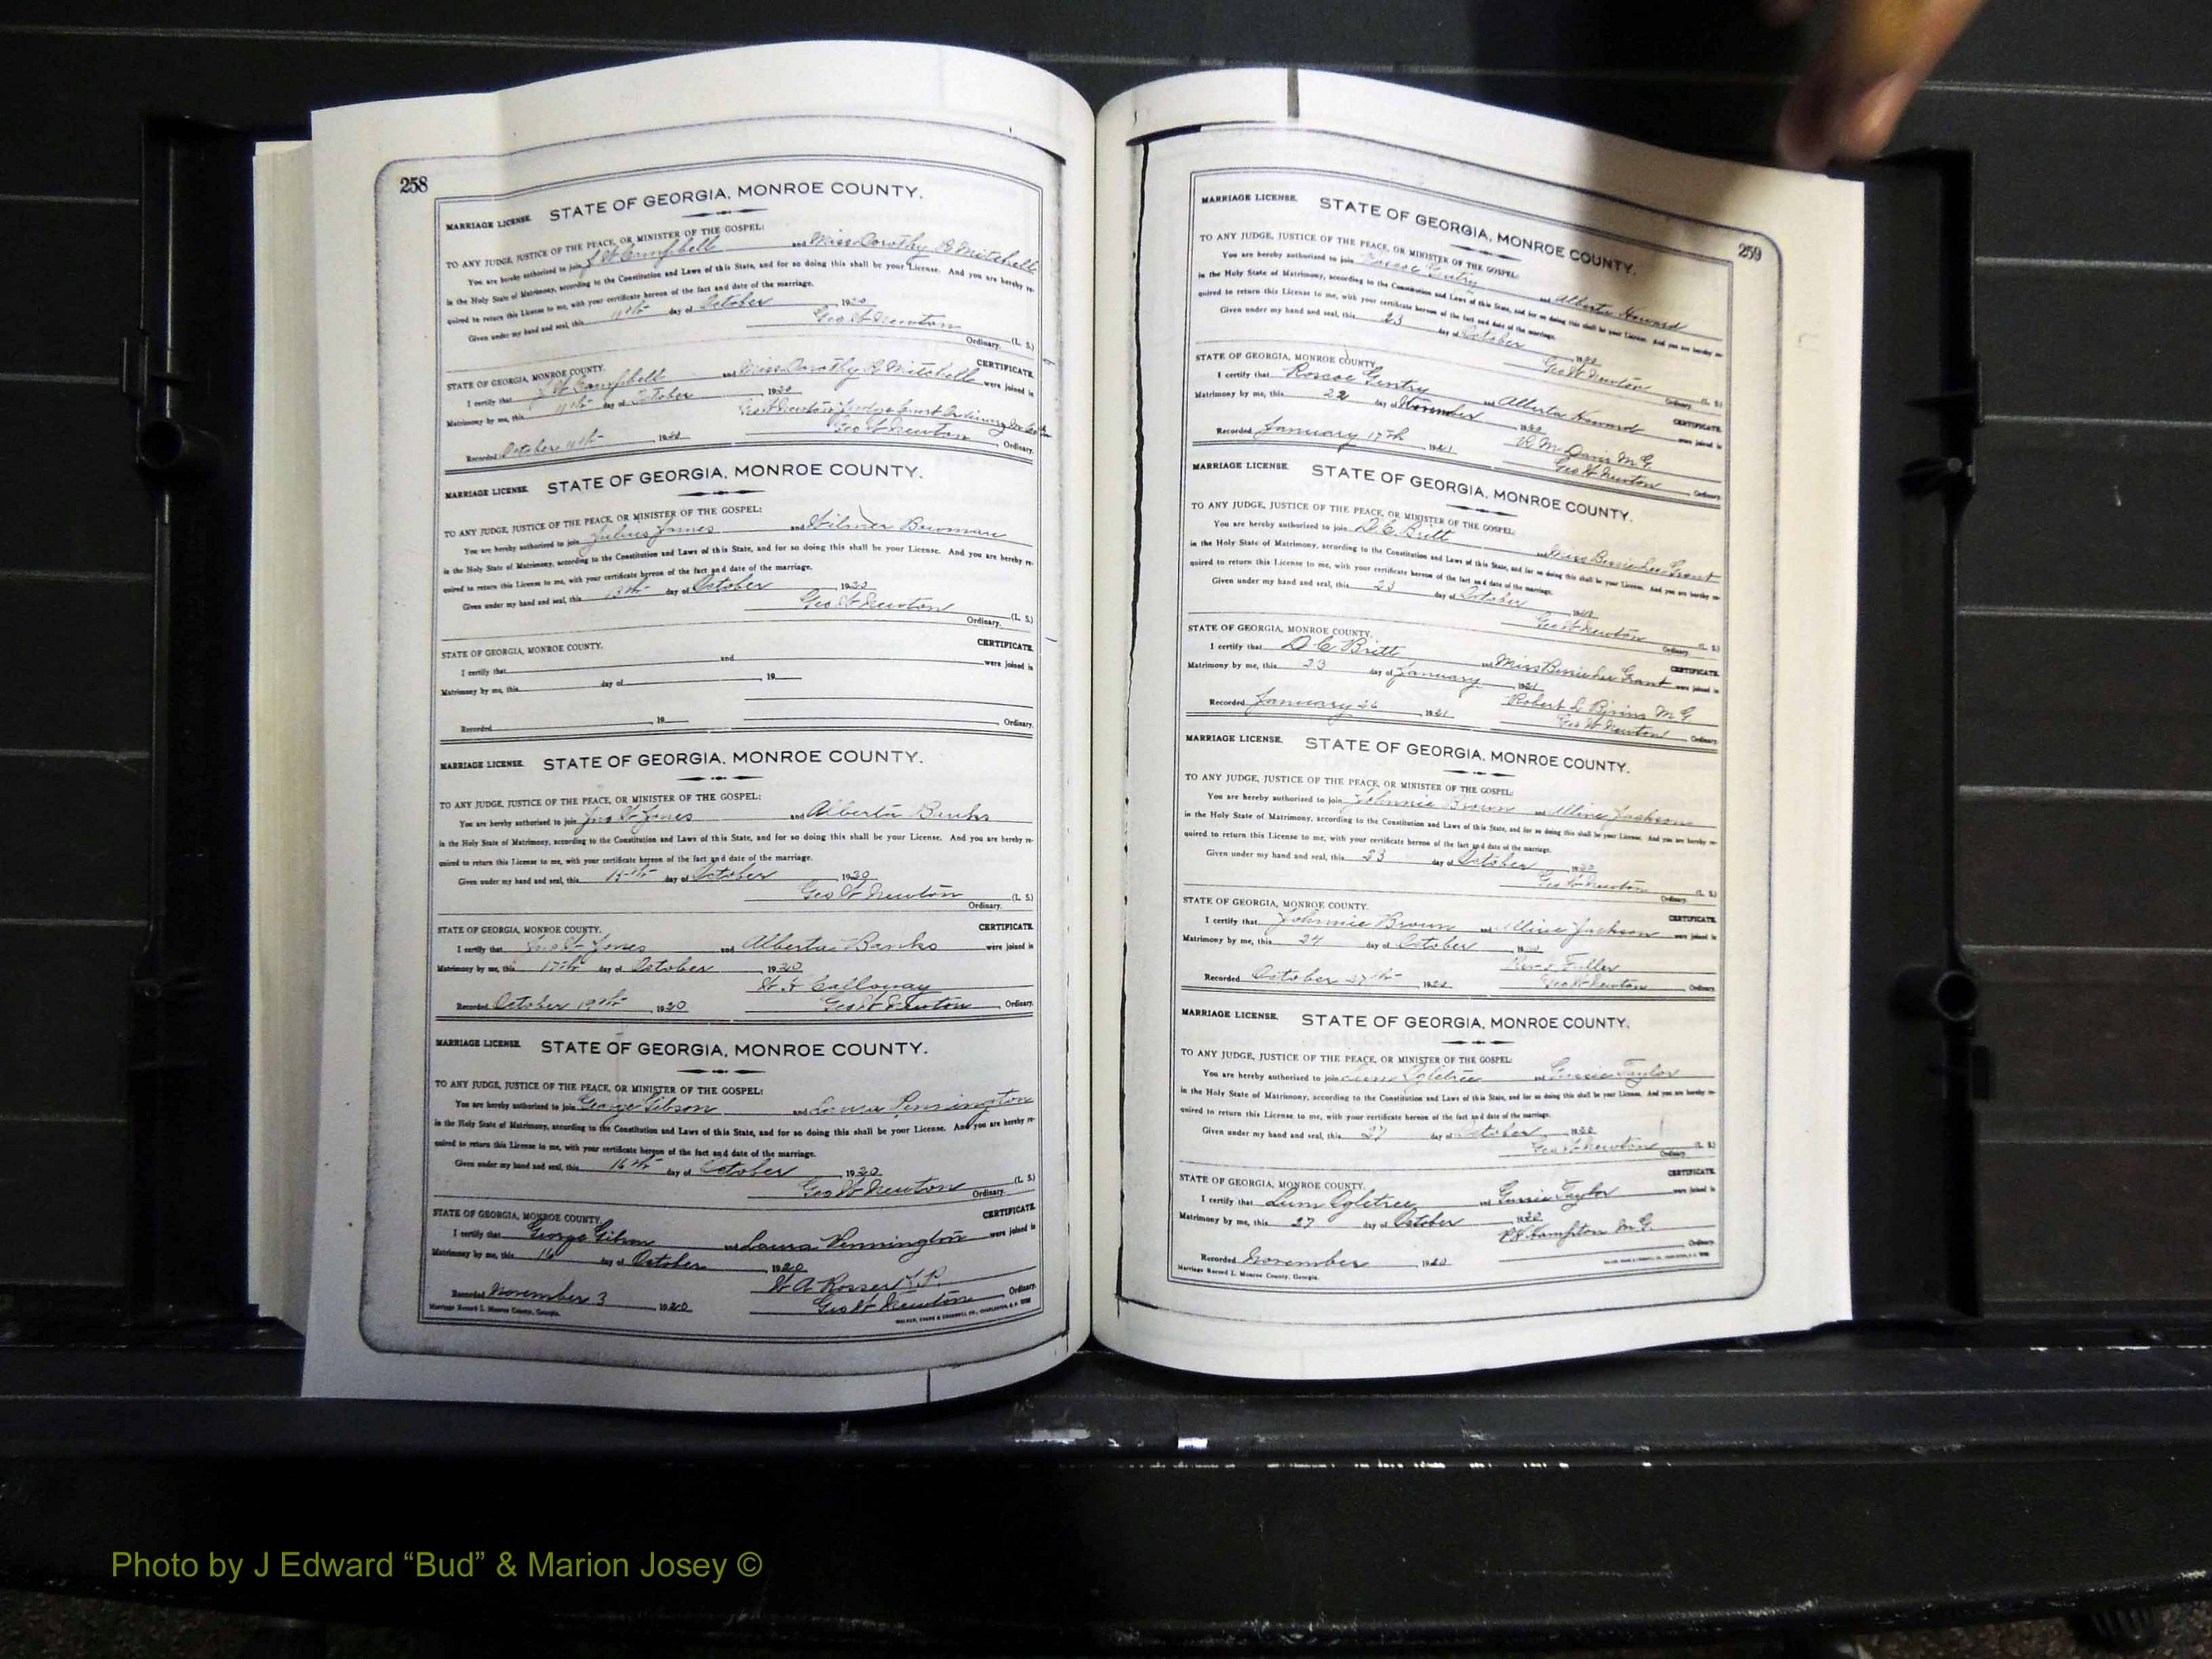 258
STATE OF GEORGIA, MONROE COUNTY.
MARRIAGE LICENSE.
TO ANY JUDGE, JUSTICE OF THE PEACE, OR MINISTER OF THE GOSPEL:
You are hereby authorized to join J W Campbell and Miss Dorothy Mitchell
in the Holy State of Matrimony, according to the Constitution and Laws of this State, and for so doing this shall be your License. And you are hereby re-
quired to return this License to me, with your certificate hereon of the fact and date of the marriage.
Given under my hand and seal, this 11th day of October, 1920
Geo W Newton (L. S.)
Ordinary.
STATE OF GEORGIA, MONROE COUNTY. CERTIFICATE.
I certify that J W Campbell and Miss Dorothy Mitchell were joined in
Matrimony by me, this 11th day of October 1920
Geo W Newton Judge Court Ordinary
Recorded October 11th, 1920 Geo W Newton Ordinary.
MARRIAGE LICENSE. STATE OF GEORGIA, MONROE COUNTY.
TO ANY JUDGE, JUSTICE OF THE PEACE, OR MINISTER OF THE GOSPEL:
You are hereby authorized to join Julius James and Wilmer Bowman
in the Holy State of Matrimony, according to the Constitution and Laws of this State, and for so doing this shall be your License. And you are hereby re-
quired to return this License to me, with your certificate hereon of the fact and date of the marriage.
Given under my hand and seal, this day of October, 1920
Geo W Newton (L. S.)
Ordinary.
STATE OF GEORGIA, MONROE COUNTY. CERTIFICATE.
I certify that and were joined in
Matrimony by me, this day of , 19
Recorded , 19 Ordinary.
MARRIAGE LICENSE. STATE OF GEORGIA, MONROE COUNTY.
TO ANY JUDGE, JUSTICE OF THE PEACE, OR MINISTER OF THE GOSPEL:
You are hereby authorized to join Jno W Jones and Alberta Banks
in the Holy State of Matrimony, according to the Constitution and Laws of this State, and for so doing this shall be your License. And you are hereby re-
quired to return this License to me, with your certificate hereon of the fact and date of the marriage.
Given under my hand and seal, this 15th day of October, 1920
Geo W Newton (L. S.)
Ordinary.
STATE OF GEORGIA, MONROE COUNTY. CERTIFICATE.
I certify that Jno W Jones and Alberta Banks were joined in
Matrimony by me, this 17th day of October, 1920
Calloway
Recorded October 19th, 1920 Geo W Newton, Ordinary.
MARRIAGE LICENSE. STATE OF GEORGIA, MONROE COUNTY.
TO ANY JUDGE, JUSTICE OF THE PEACE, OR MINISTER OF THE GOSPEL:
You are hereby authorized to join George Gibson and Laura Pennington
in the Holy State of Matrimony, according to the Constitution and Laws of this State, and for so doing this shall be your License. And you are hereby re-
quired to return this License to me, with your certificate hereon of the fact and date of the marriage.
Given under my hand and seal, this 16th day of October, 1920
Geo W Newton (L. S.)
Ordinary.
STATE OF GEORGIA, MONROE COUNTY. CERTIFICATE.
I certify that George Gibson and Laura Pennington were joined in
Matrimony by me, this 16 day of October, 1920
W A Rosser J.P.
Recorded November 3 1920 Geo W Newton Ordinary.
Marriage Record I. Monroe County, Georgia.
259
MARRIAGE LICENSE. STATE OF GEORGIA, MONROE COUNTY.
TO ANY JUDGE, JUSTICE OF THE PEACE, OR MINISTER OF THE GOSPEL:
You are hereby authorized to join Roscoe Gentry and Alberta Howard
in the Holy State of Matrimony, according to the Constitution and Laws of this State, and for so doing this shall be your License. And you are hereby re-
quired to return this License to me, with your certificate hereon of the fact and date of the marriage.
Given under my hand and seal, this 23 day of October 1920
Geo W Newton (L. S.)
Ordinary.
STATE OF GEORGIA, MONROE COUNTY. CERTIFICATE.
I certify that Roscoe Gentry and Alberta Howard were joined in
Matrimony by me, this 22 day of November, 1920
Davis M G
Recorded January 17th, 1921 Geo W Newton, Ordinary.
MARRIAGE LICENSE. STATE OF GEORGIA, MONROE COUNTY.
TO ANY JUDGE, JUSTICE OF THE PEACE, OR MINISTER OF THE GOSPEL:
You are hereby authorized to join D. C. Britt and Miss Grant
in the Holy State of Matrimony, according to the Constitution and Laws of this State, and for so doing this shall be your License. And you are hereby re-
quired to return this License to me, with your certificate hereon of the fact and date of the marriage.
Given under my hand and seal, this 23 day of October, 1920
Geo W Newton (L. S.)
Ordinary.
STATE OF GEORGIA, MONROE COUNTY. CERTIFICATE.
I certify that D C Britt and Miss Grant were joined in
Matrimony by me, this 23 day of January, 1921
Robert Bivins M G
Recorded January 26, 1921 Geo W Newton, Ordinary.
MARRIAGE LICENSE. STATE OF GEORGIA, MONROE COUNTY.
TO ANY JUDGE, JUSTICE OF THE PEACE, OR MINISTER OF THE GOSPEL:
You are hereby authorized to join Johnnie Brown and Alline Jackson
in the Holy State of Matrimony, according to the Constitution and Laws of this State, and for so doing this shall be your License. And you are hereby re-
quired to return this License to me, with your certificate hereon of the fact and date of the marriage.
Given under my hand and seal, this 23 day of October, 1920
Geo W Newton (L. S.)
Ordinary.
STATE OF GEORGIA, MONROE COUNTY. CERTIFICATE.
I certify that Johnnie Brown and Alline Jackson were joined in
Matrimony by me, this 24 day of October, 1920
Fuller
Recorded October 27th, 1920 Geo W Newton, Ordinary.
MARRIAGE LICENSE. STATE OF GEORGIA, MONROE COUNTY.
TO ANY JUDGE, JUSTICE OF THE PEACE, OR MINISTER OF THE GOSPEL:
You are hereby authorized to join Lum Ogletree and Gussie Taylor
in the Holy State of Matrimony, according to the Constitution and Laws of this State, and for so doing this shall be your License. And you are hereby re-
quired to return this License to me, with your certificate hereon of the fact and date of the marriage.
Given under my hand and seal, this 27 day of October, 1920
Geo W Newton (L. S.)
Ordinary.
STATE OF GEORGIA, MONROE COUNTY. CERTIFICATE.
I certify that Lum Ogletree and Gussie Taylor were joined in
Matrimony by me, this 27 day of October, 1920
Hampton M.G.
Recorded November, 1920 Ordinary.
Marriage Record I. Monroe County, Georgia.
Photo by J Edward “Bud” & Marion Josey ©